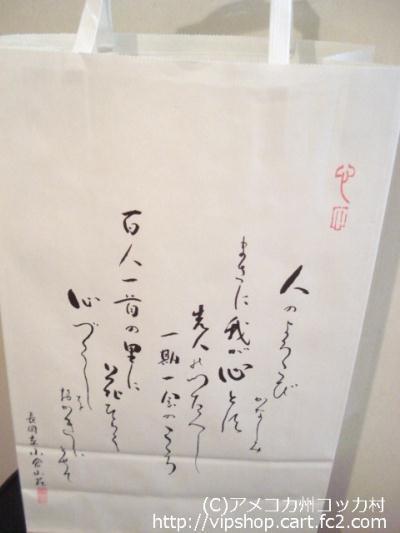 人のよろこび
かなしみ
まさに我が心と
先人のつたへし
一期一会のこころ
百人一首の里に
心づくし
長岡京小倉山荘
(C)アメコカ州コッカ村
http://vipshop.cart.fc2.com